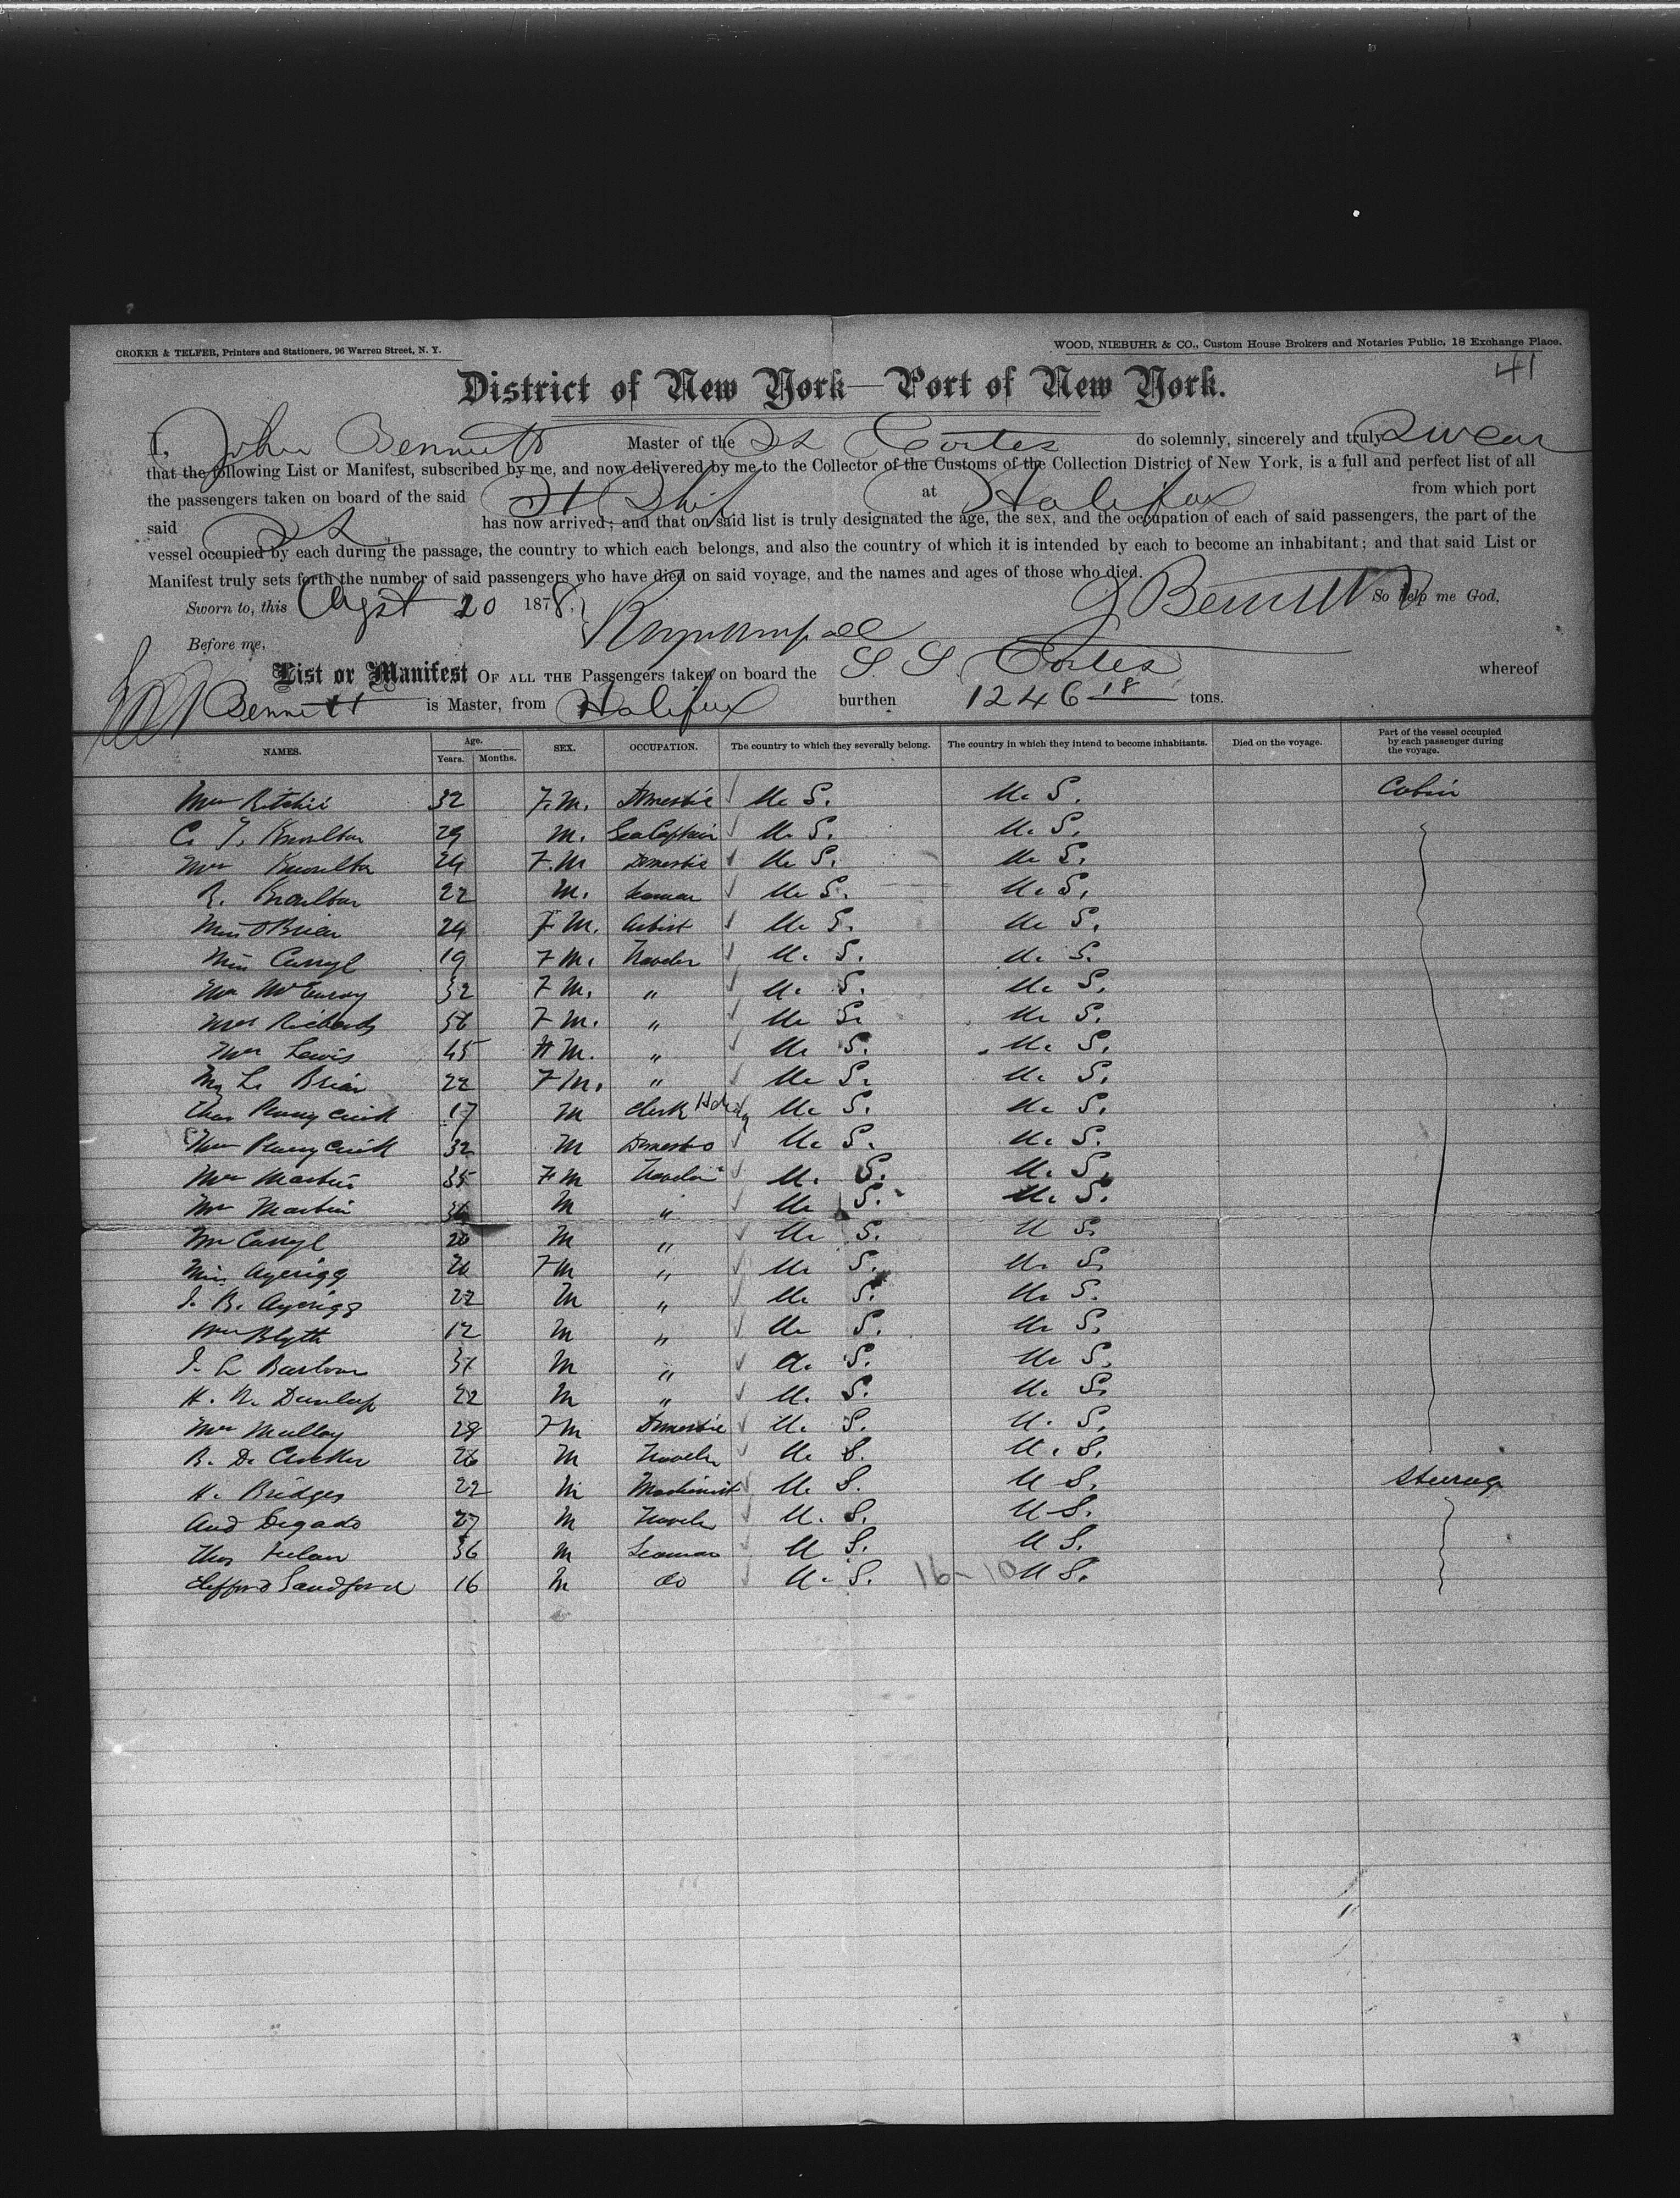 CROKER & TELFER, Printers and Stationers, 96 Warren Street, N. Y.
WOOD, NIEBUHR & CO., Custom House Brokers and Notaries Public, 18 Exchange Place.
41
District of New York—Port of New York.
I, John Bennett Master of the SS Cortes do solemnly, sincerely and truly Swear
that the following List or Manifest, subscribed by me, and now delivered by me to the Collector of the Customs of the Collection District of New York, is a full and perfect list of all
the passengers taken on board of the said St Ship at Halifax from which port
said SS has now arrived; and that on said list is truly designated the age, the sex, and the occupation of each of said passengers, the part of the
vessel occupied by each during the passage, the country to which each belongs, and also the country of which it is intended by each to become an inhabitant; and that said List or
Manifest truly sets forth the number of said passengers who have died on said voyage, and the names and ages of those who died.
Sworn to, this Agst 20 1878. J Bennett So help me God.
Before me,
List or Manifest OF ALL THE Passengers taken on board the S S Cortes whereof
Bennett is Master, from Halifax burthen 1246 18 tons.
NAMES. Age. Years. Months. SEX. OCCUPATION. The country to which they severally belong. The country in which they intend to become inhabitants. Died on the voyage. Part of the vessel occupied by each passenger during the voyage.
Mrs Ritchie 32 F.M. Domestic U. S. U. S. Cabin
C. T. Knowlton 29 M. Sea Captain U. S. U. S.
Mrs Knowlton 24 F.M Domestic U. S. U. S.
R. Knowlton 22 M. Seaman U. S. U. S.
Miss O'Brien 24 F M. Artist U. S. U. S.
Miss Carryl 19 F M. Traveler U. S. U. S.
32 F M. " U. S. U. S.
Mrs Richards 56 F M. " U. S. U. S.
Mr Lewis 45 M. " U. S. U. S.
Brien 22 F M. " U. S. U. S.
17 M Clerk U. S. U. S.
32 M Domestic U. S. U. S.
Mrs Martin 35 F M Traveler U. S. U. S.
Mr Martin M " U. S. U. S.
Mr Carryl 20 M " U. S. U S.
Miss Ayerigg 20 F M " U. S. U. S.
J. B. Ayerigg 22 M " U. S. U. S.
Blyth 12 M " U. S. U. S.
J. L. Barbour M " U. S. U. S.
H. N. Dunlap 22 M " U. S. U. S.
Mrs Mulloy 28 F M Domestic U. S. U. S.
R. D. 26 M Traveler U. S. U. S.
H. Bridges 22 M Machinist U. S. U S. Steerage
And Degado 27 M Traveler U. S. U S.
Thos 36 M Seaman U S. U S.
Clifford Sandford 16 M do U. S. 16-10 U S.